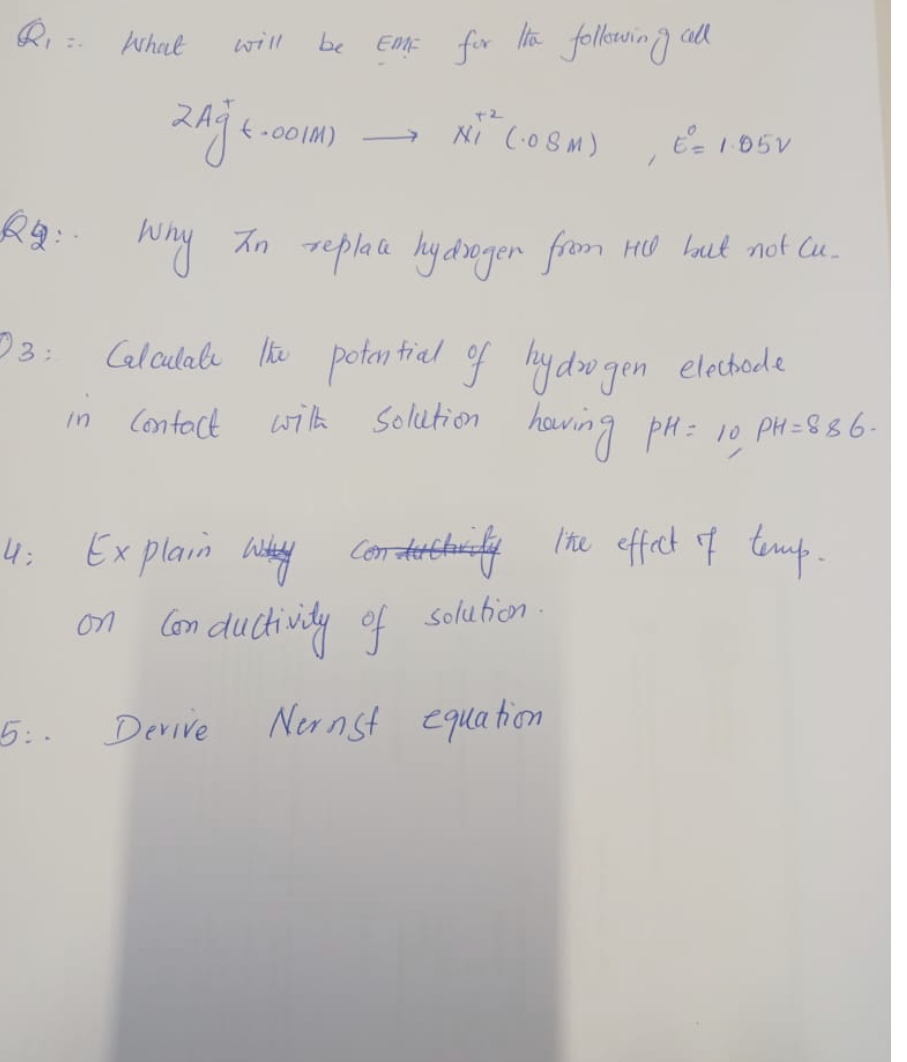 Q1:- What will be EMF for the following cell
2Ag+ (.001M) → Ni+2 (.08M) , E°= 1.05V
Q2:- Why Zn replace hydrogen from HCl but not Cu.
Q3: Calculate the potential of hydrogen electrode
in contact with solution having pH= 10, PH=886.
4: Explain why conductivity the effect of temp.
on conductivity of solution.
5:- Derive Nernst equation